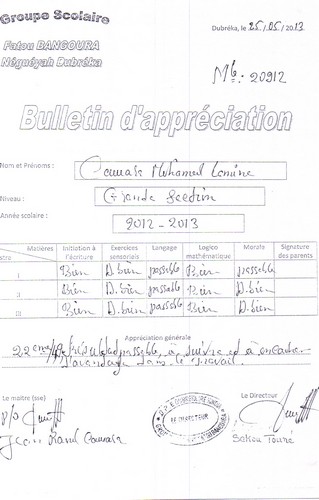 Groupe Scolaire
Dubréka, le 25/05/2013
Fatou BANGOURA
Néguéyah Dubréka
Mle. 20912
Bulletin d'appréciation
Nom et Prénoms : Camara Mohamed Lamine
Niveau : Grande Section
Année scolaire : 2012-2013
Matières Initiation à l'écriture Exercices sensoriels Langage Logico mathématique Morale Signature des parents
I Bien A.bien passable Bien passable
II Bien A.bien passable Bien A.bien
III Bien A.bien passable Bien A.bien
Appréciation générale
22eme passable, à suivre et à
d'avantage dans le travail.
Le maitre (sse)
Le Directeur
P/o
LE DIRECTEUR
Jean Camara
Sekou Touré